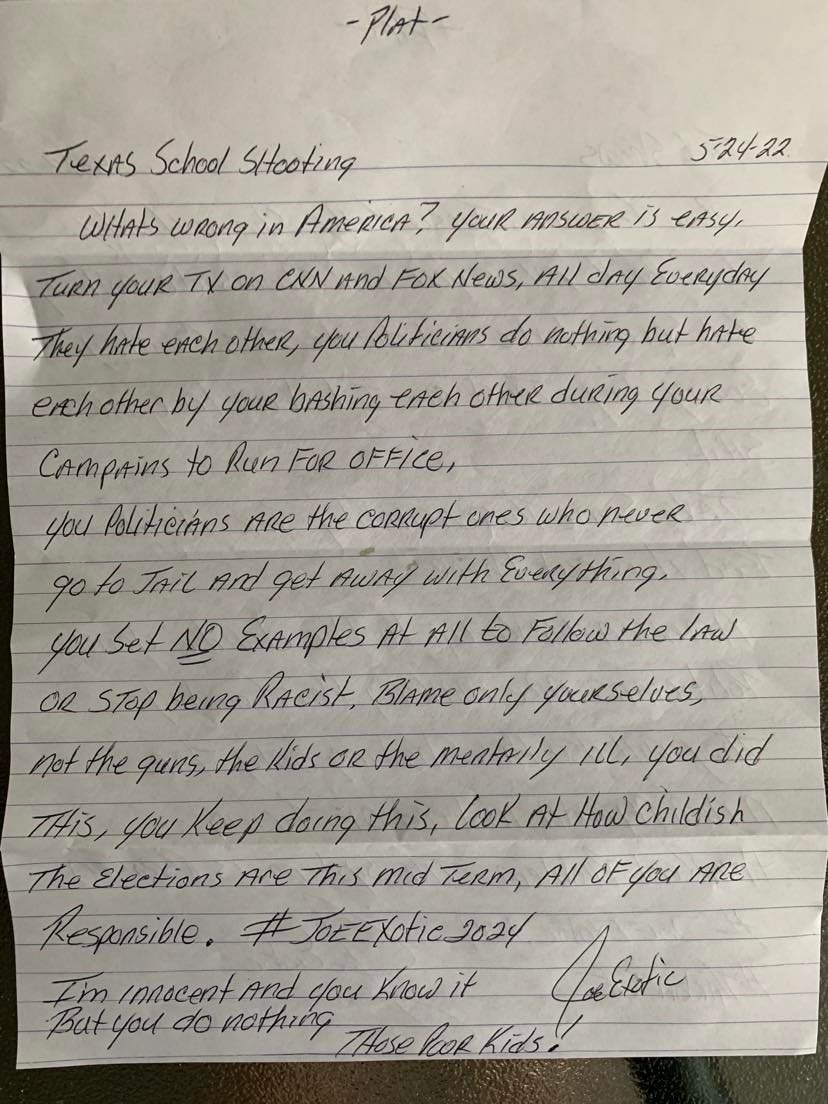 -Plat-
Texas School Shooting 5-24-22
Whats wrong in America? Your answer is easy,
Turn your TV on CNN and Fox News, All day Everyday
They hate each other, you Politicians do nothing but hate
each other by your bashing each other during your
Campains to Run For Office,
you Politicians are the corrupt ones who never
go to Jail and get away with Everything,
you Set NO Examples At All to Follow the law
or stop being Racist, Blame only yourselves,
not the guns, the Kids or the mentally ill, you did
This, you Keep doing this, look At How childish
The Elections Are This mid Term, All of you Are
Responsible. #JoeExotic2024
I'm innocent And you Know it Joe Exotic
But you do nothing
Those Poor Kids!!